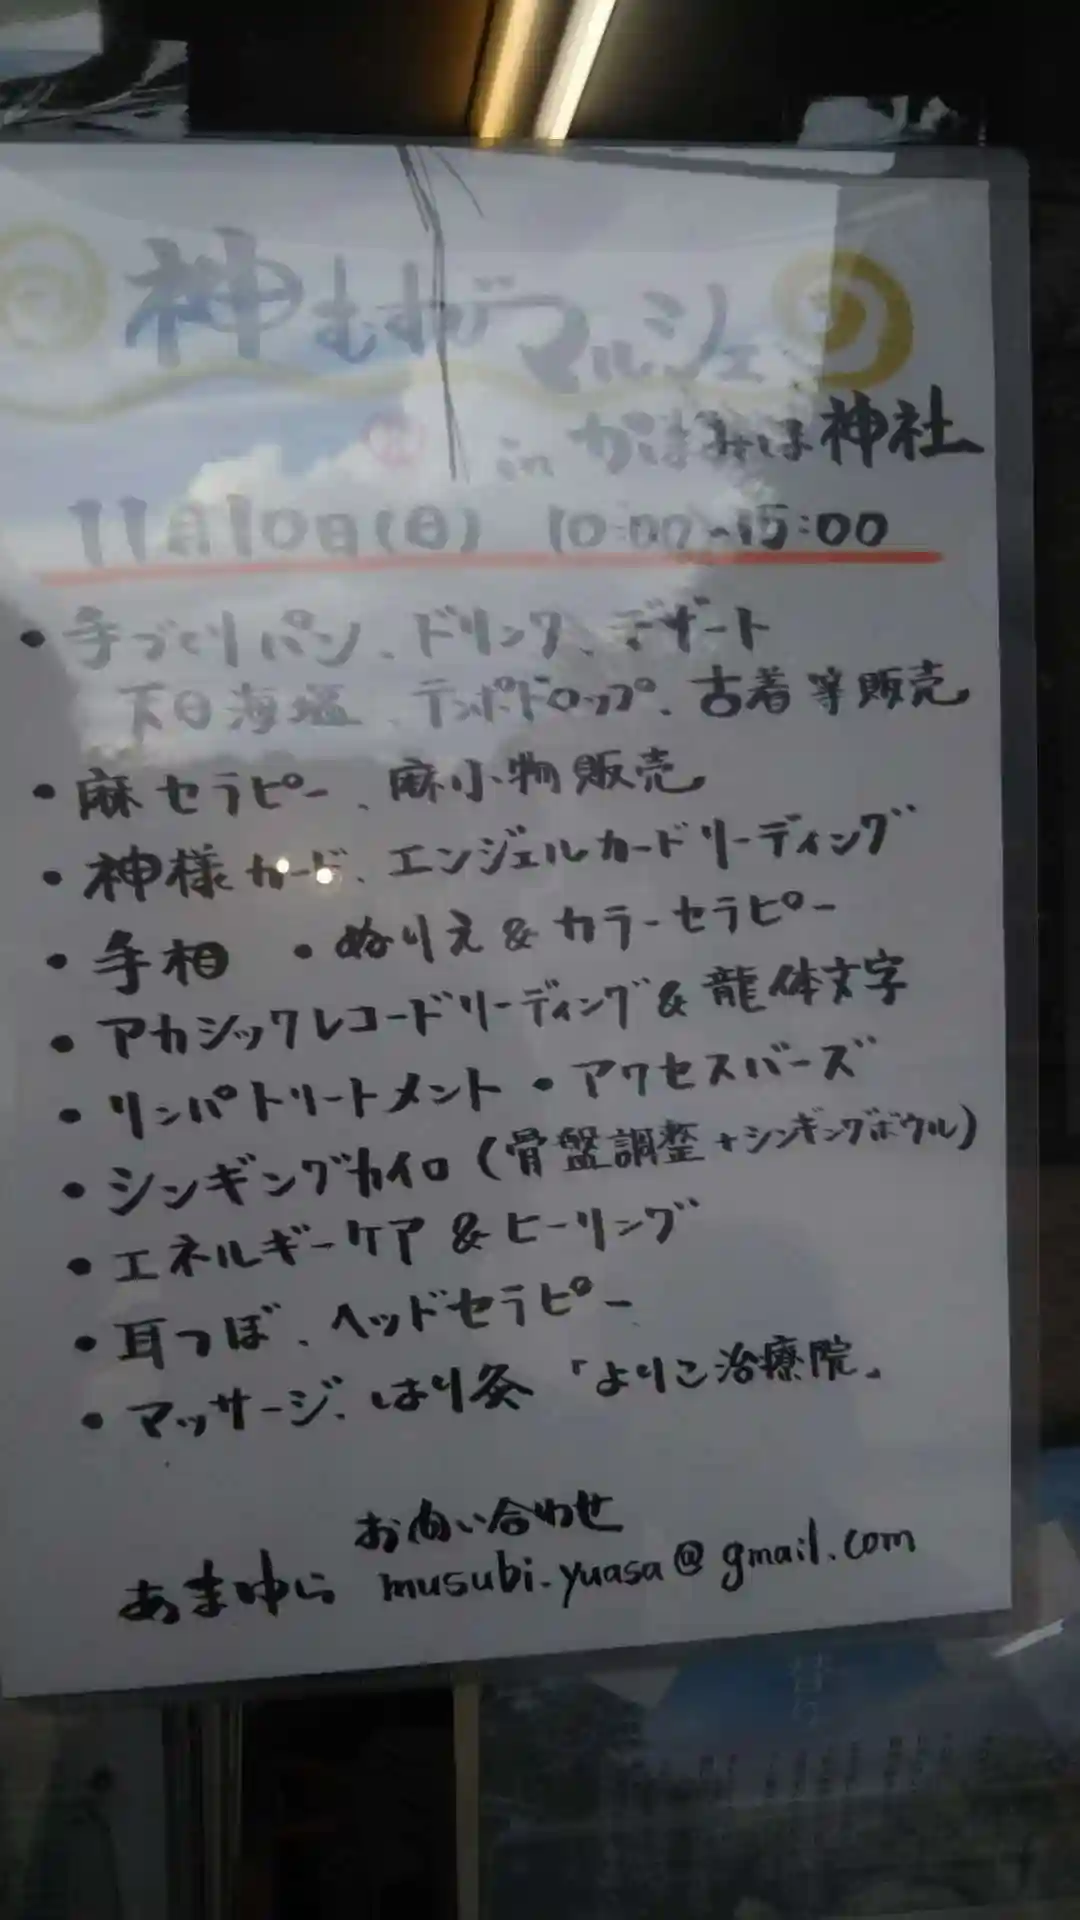 神むすびマルシェ
in かはみは神社
11月10日(日) 10:00~15:00
• 手づくりパン、ドリンク、デザート
下田海塩、テンポドロップ、古着等販売
• 麻セラピー、麻小物販売
• 神様カード、エンジェルカードリーディング
• 手相 • ぬりえ&カラーセラピー
• アカシックレコードリーディング&龍体文字
• リンパトリートメント • アクセスバーズ
• シンギングカイロ(骨盤調整+シンギングボウル)
• エネルギーケア&ヒーリング
• 耳つぼ、ヘッドセラピー
• マッサージ、はり灸「よりこ治療院」
お問い合わせ
あまゆら musubi.yuasa@gmail.com